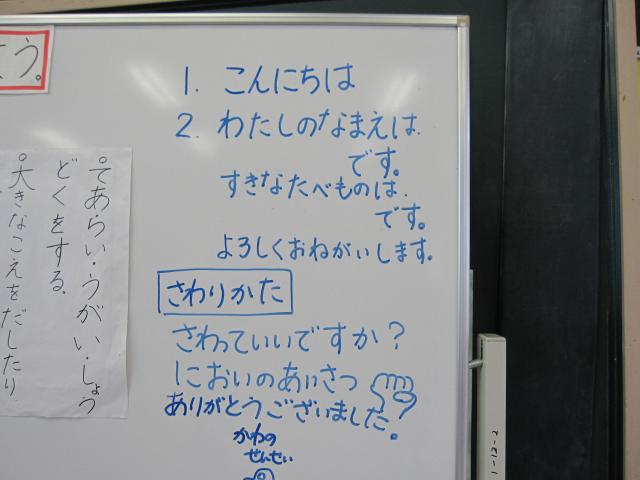 よう。
1. こんにちは
2. わたしのなまえは
です。
すきなたべものは
です。
よろしくおねがいします。
さわりかた
さわっていいですか?
においのあいさつ
ありがとうございました。
かわの
せんせい
°てあらい・うがい・しょう
どくをする。
°大きなこえをだしたり
1-12-2